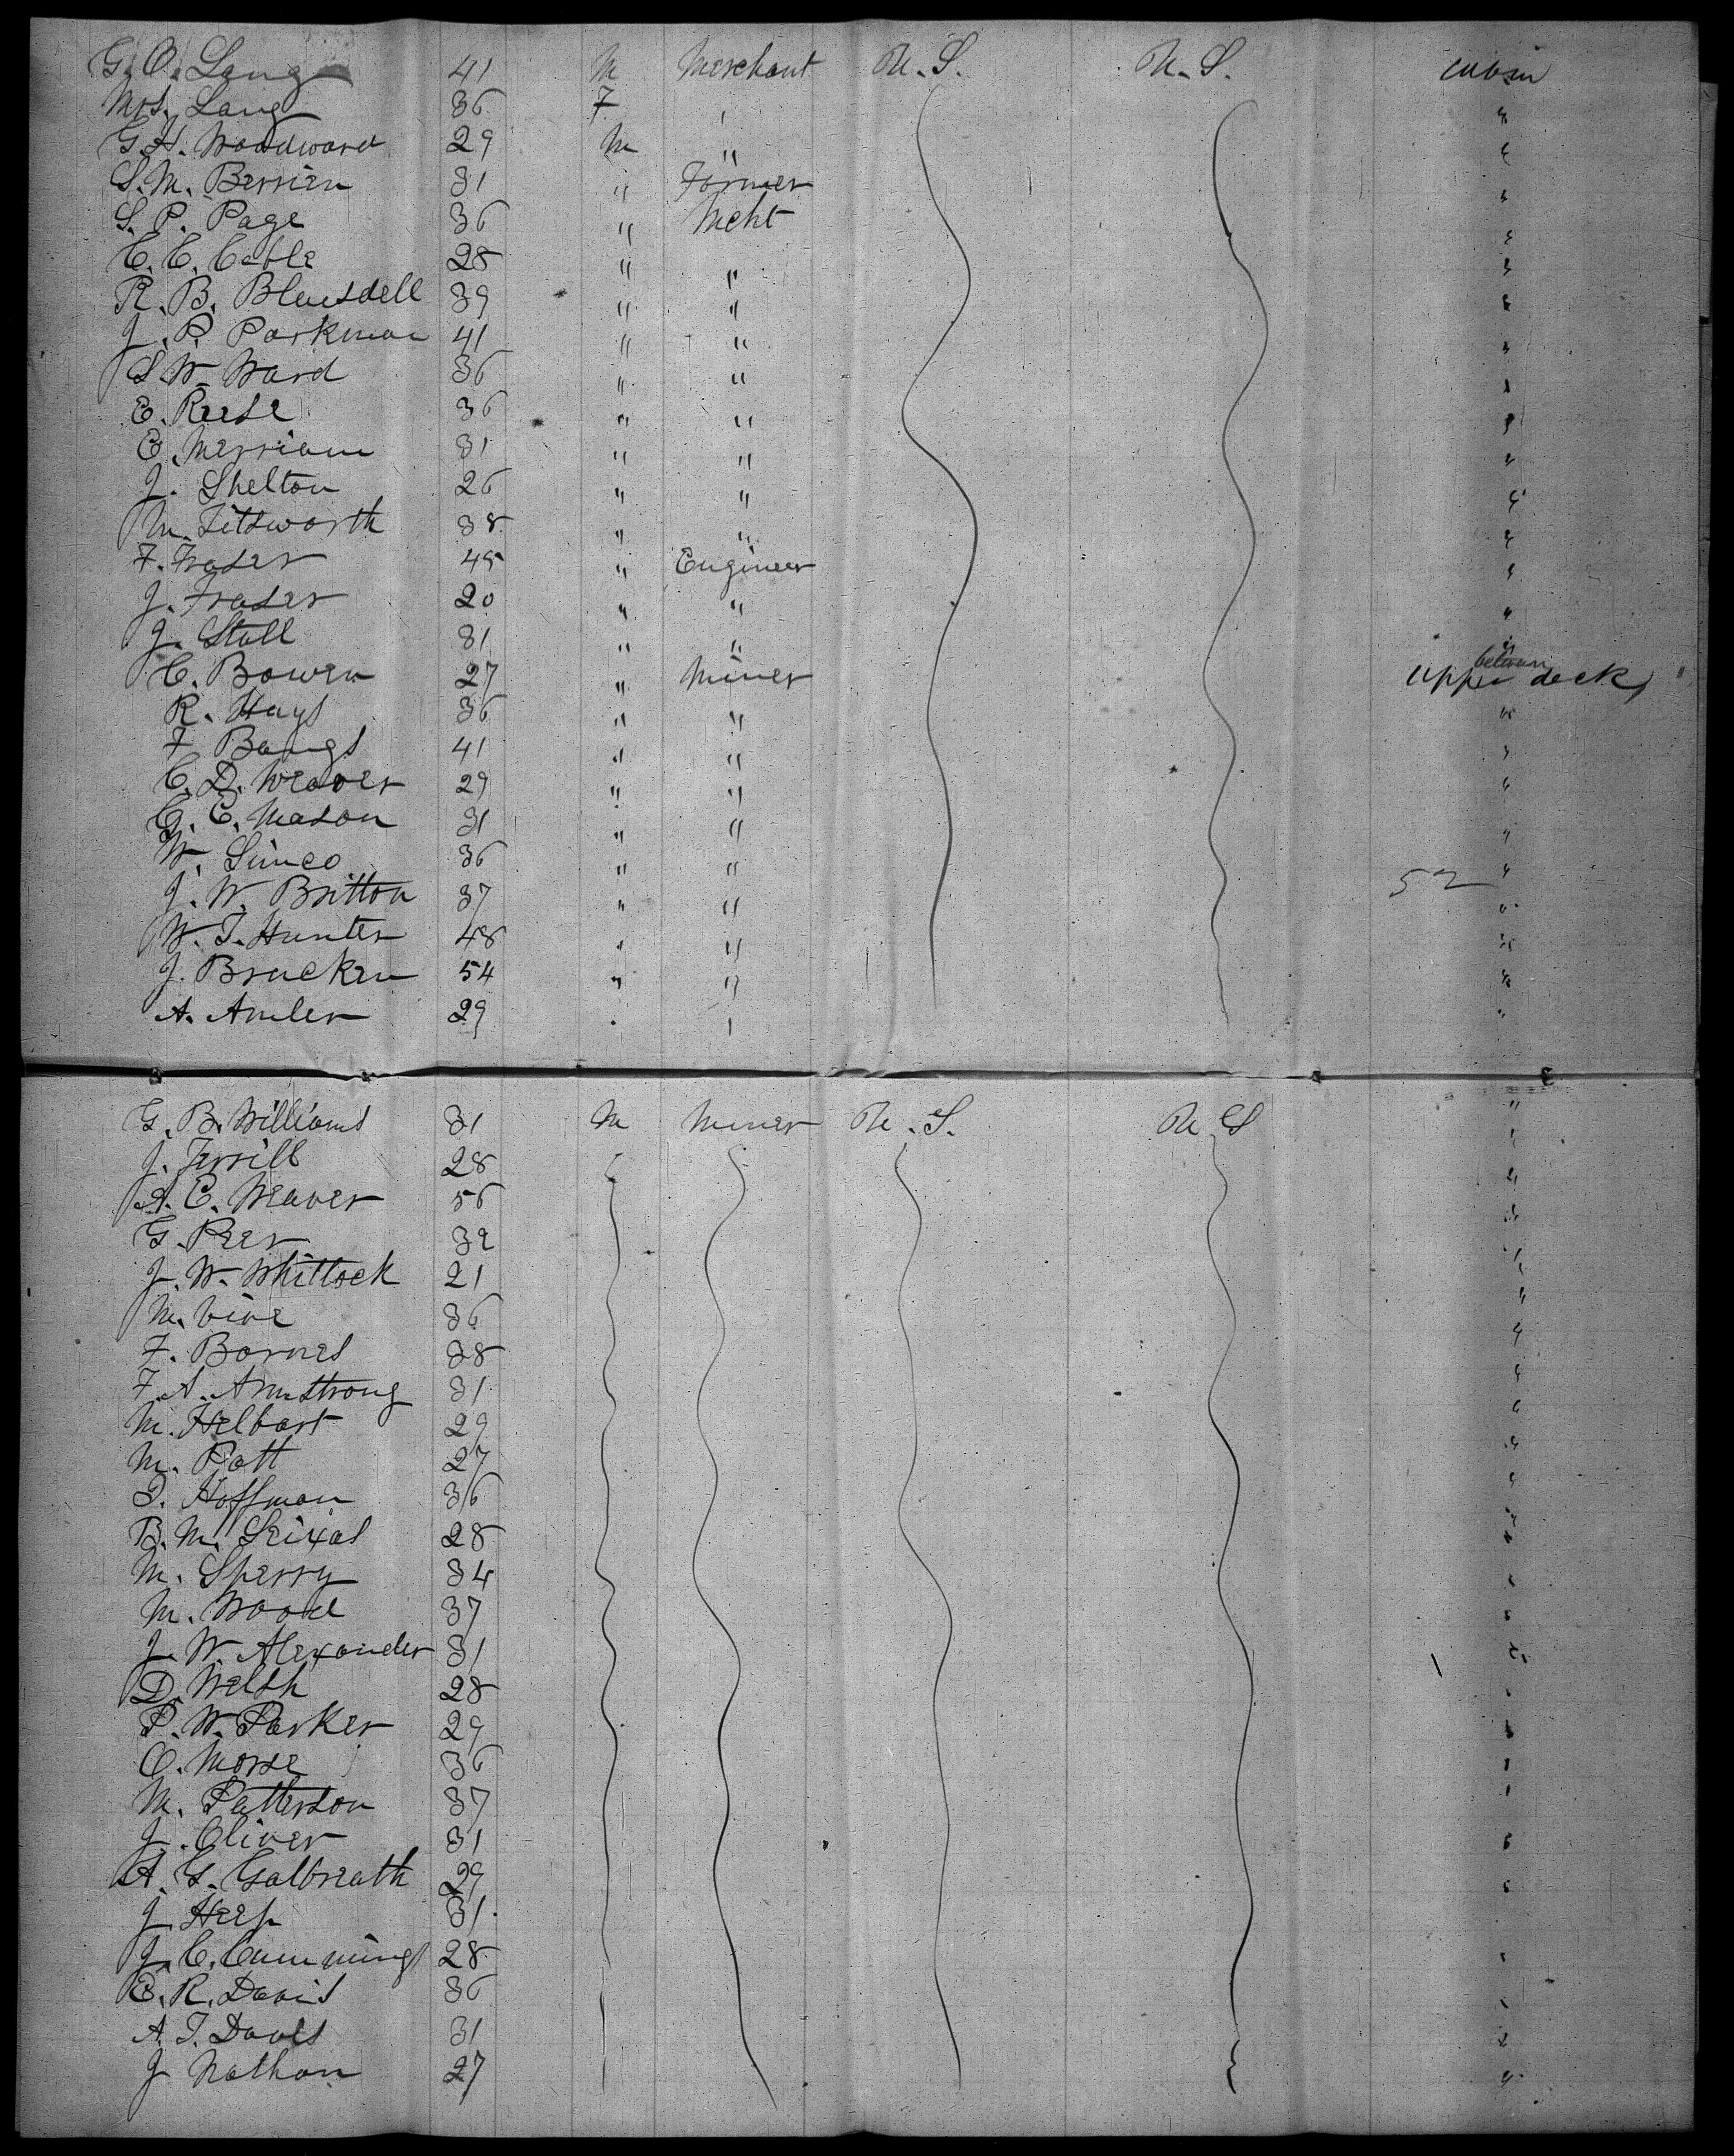 G. O. Lang 41 M Merchant U.S. U.S. cabin
Mrs. Lang 36 F " "
G. H. Woodward 29 M " "
S. M. Berrien 31 " Farmer "
S. P. Page 36 " Mcht "
C. C. Cable 28 " " "
R. B. Blaisdell 39 " " "
J. P. Parkman 41 " " "
S. W. Ward 36 " " "
E. Reese 36 " " "
E. Merriam 31 " " "
J. Shelton 26 " " "
M. Titsworth 38 " " "
F. Fraser 45 " Engineer "
J. Fraser 20 " " "
J. Stall 31 " " "
C. Bowen 27 " Miner upper between deck
R. Hays 36 " " "
F. Bangs 41 " " "
C. D. Weaver 29 " " "
G. E. Mason 31 " " "
W. Simco 36 " " "
J. W. Britton 37 " " 52 "
W. T. Hunter 48 " " "
J. Bracken 54 " " "
A. Amler 29 " " "
G. B. Williams 31 M Miner U.S. U S "
J. Terrill 28 "
A. C. Weaver 56 "
G. Peer 32 "
J. W. Whitlock 21 "
M. Vine 36 "
F. Barnes 38 "
F. A. Armstrong 31 "
M. Helbart 29 "
M. Patt 27 "
D. Hoffman 36 "
B. M. Seixas 28 "
M. Sperry 34 "
M. Wood 37 "
J. W. Alexander 31 "
D. Welsh 28 "
P. W. Parker 29 "
O. Morse 36 "
M. Patterson 37 "
J. Oliver 31 "
A. G. Galbreath 29 "
J. Heep 31
J. C. Cummings 28 "
E. R. Davis 36 "
A. T. Daves 31 "
J Nathan 27 "